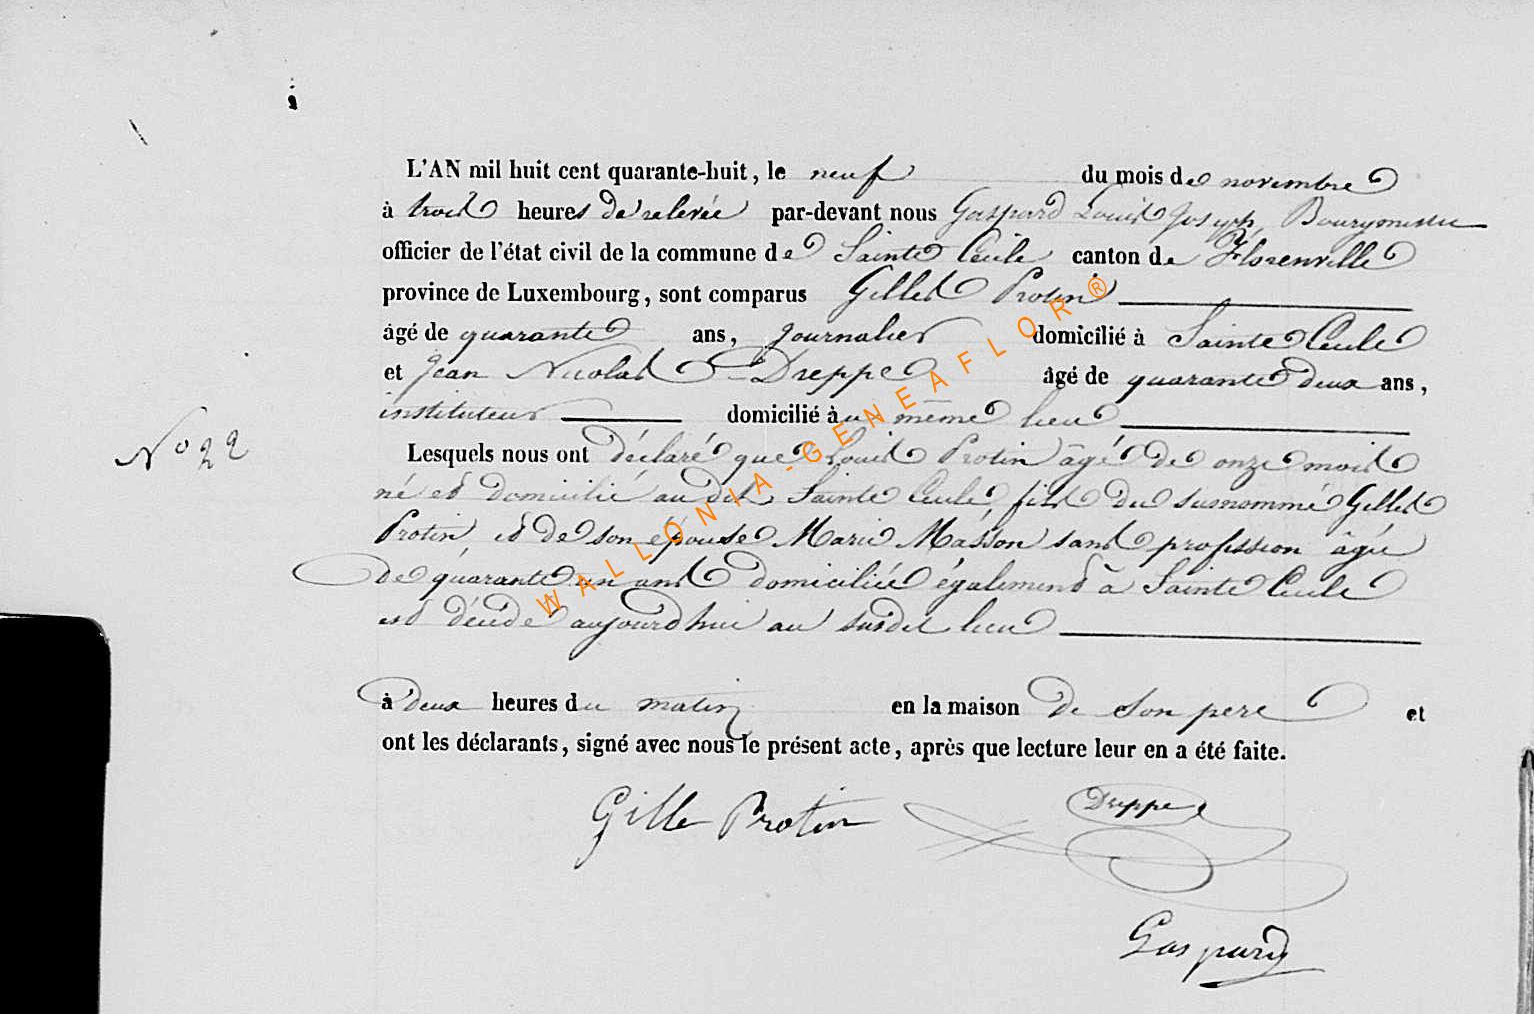 L'AN mil huit cent quarante-huit, le neuf du mois de novembre
à trois heures de relevée par-devant nous Gaspard Louis Joseph Bourgmestre
officier de l'état civil de la commune de Sainte Cécile canton de Florenville
province de Luxembourg, sont comparus Gilles Protin
âgé de quarante ans, journalier domicilié à Sainte Cécile
et Jean Nicolas Dreppe âgé de quarante deux ans,
instituteur domicilié au même lieu
No 22
Lesquels nous ont déclaré que Louis Protin âgé de onze mois
né et domicilié au dit Sainte Cécile, fils du susnommé Gilles
Protin, et de son épouse Marie Masson sans profession âgée
de quarante un ans domiciliée également à Sainte Cécile
est décédé aujourd'hui au susdit lieu
à deux heures du matin en la maison de son pere et
ont les déclarants, signé avec nous le présent acte, après que lecture leur en a été faite.
Gille Protin Dreppe
Gaspard
WALLONIA-GENEAFLOR®